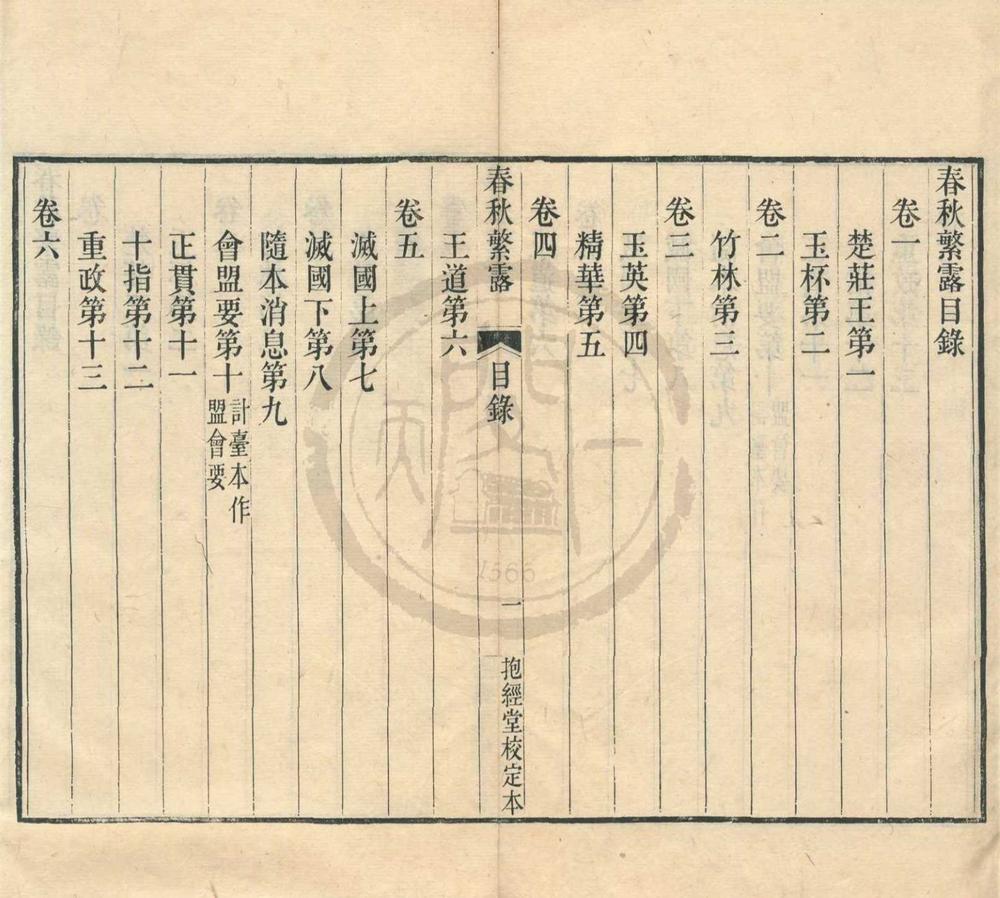 春秋繁露目錄
卷一
楚莊王第一
玉杯第二
卷二
竹林第三
卷三
玉英第四
精華第五
卷四
春秋繁露 目錄 一 抱經堂校定本
王道第六
卷五
滅國上第七
滅國下第八
隨本消息第九
會盟要第十 計臺本作
盟會要
正貫第十一
十指第十二
重政第十三
卷六
天一閣
1566